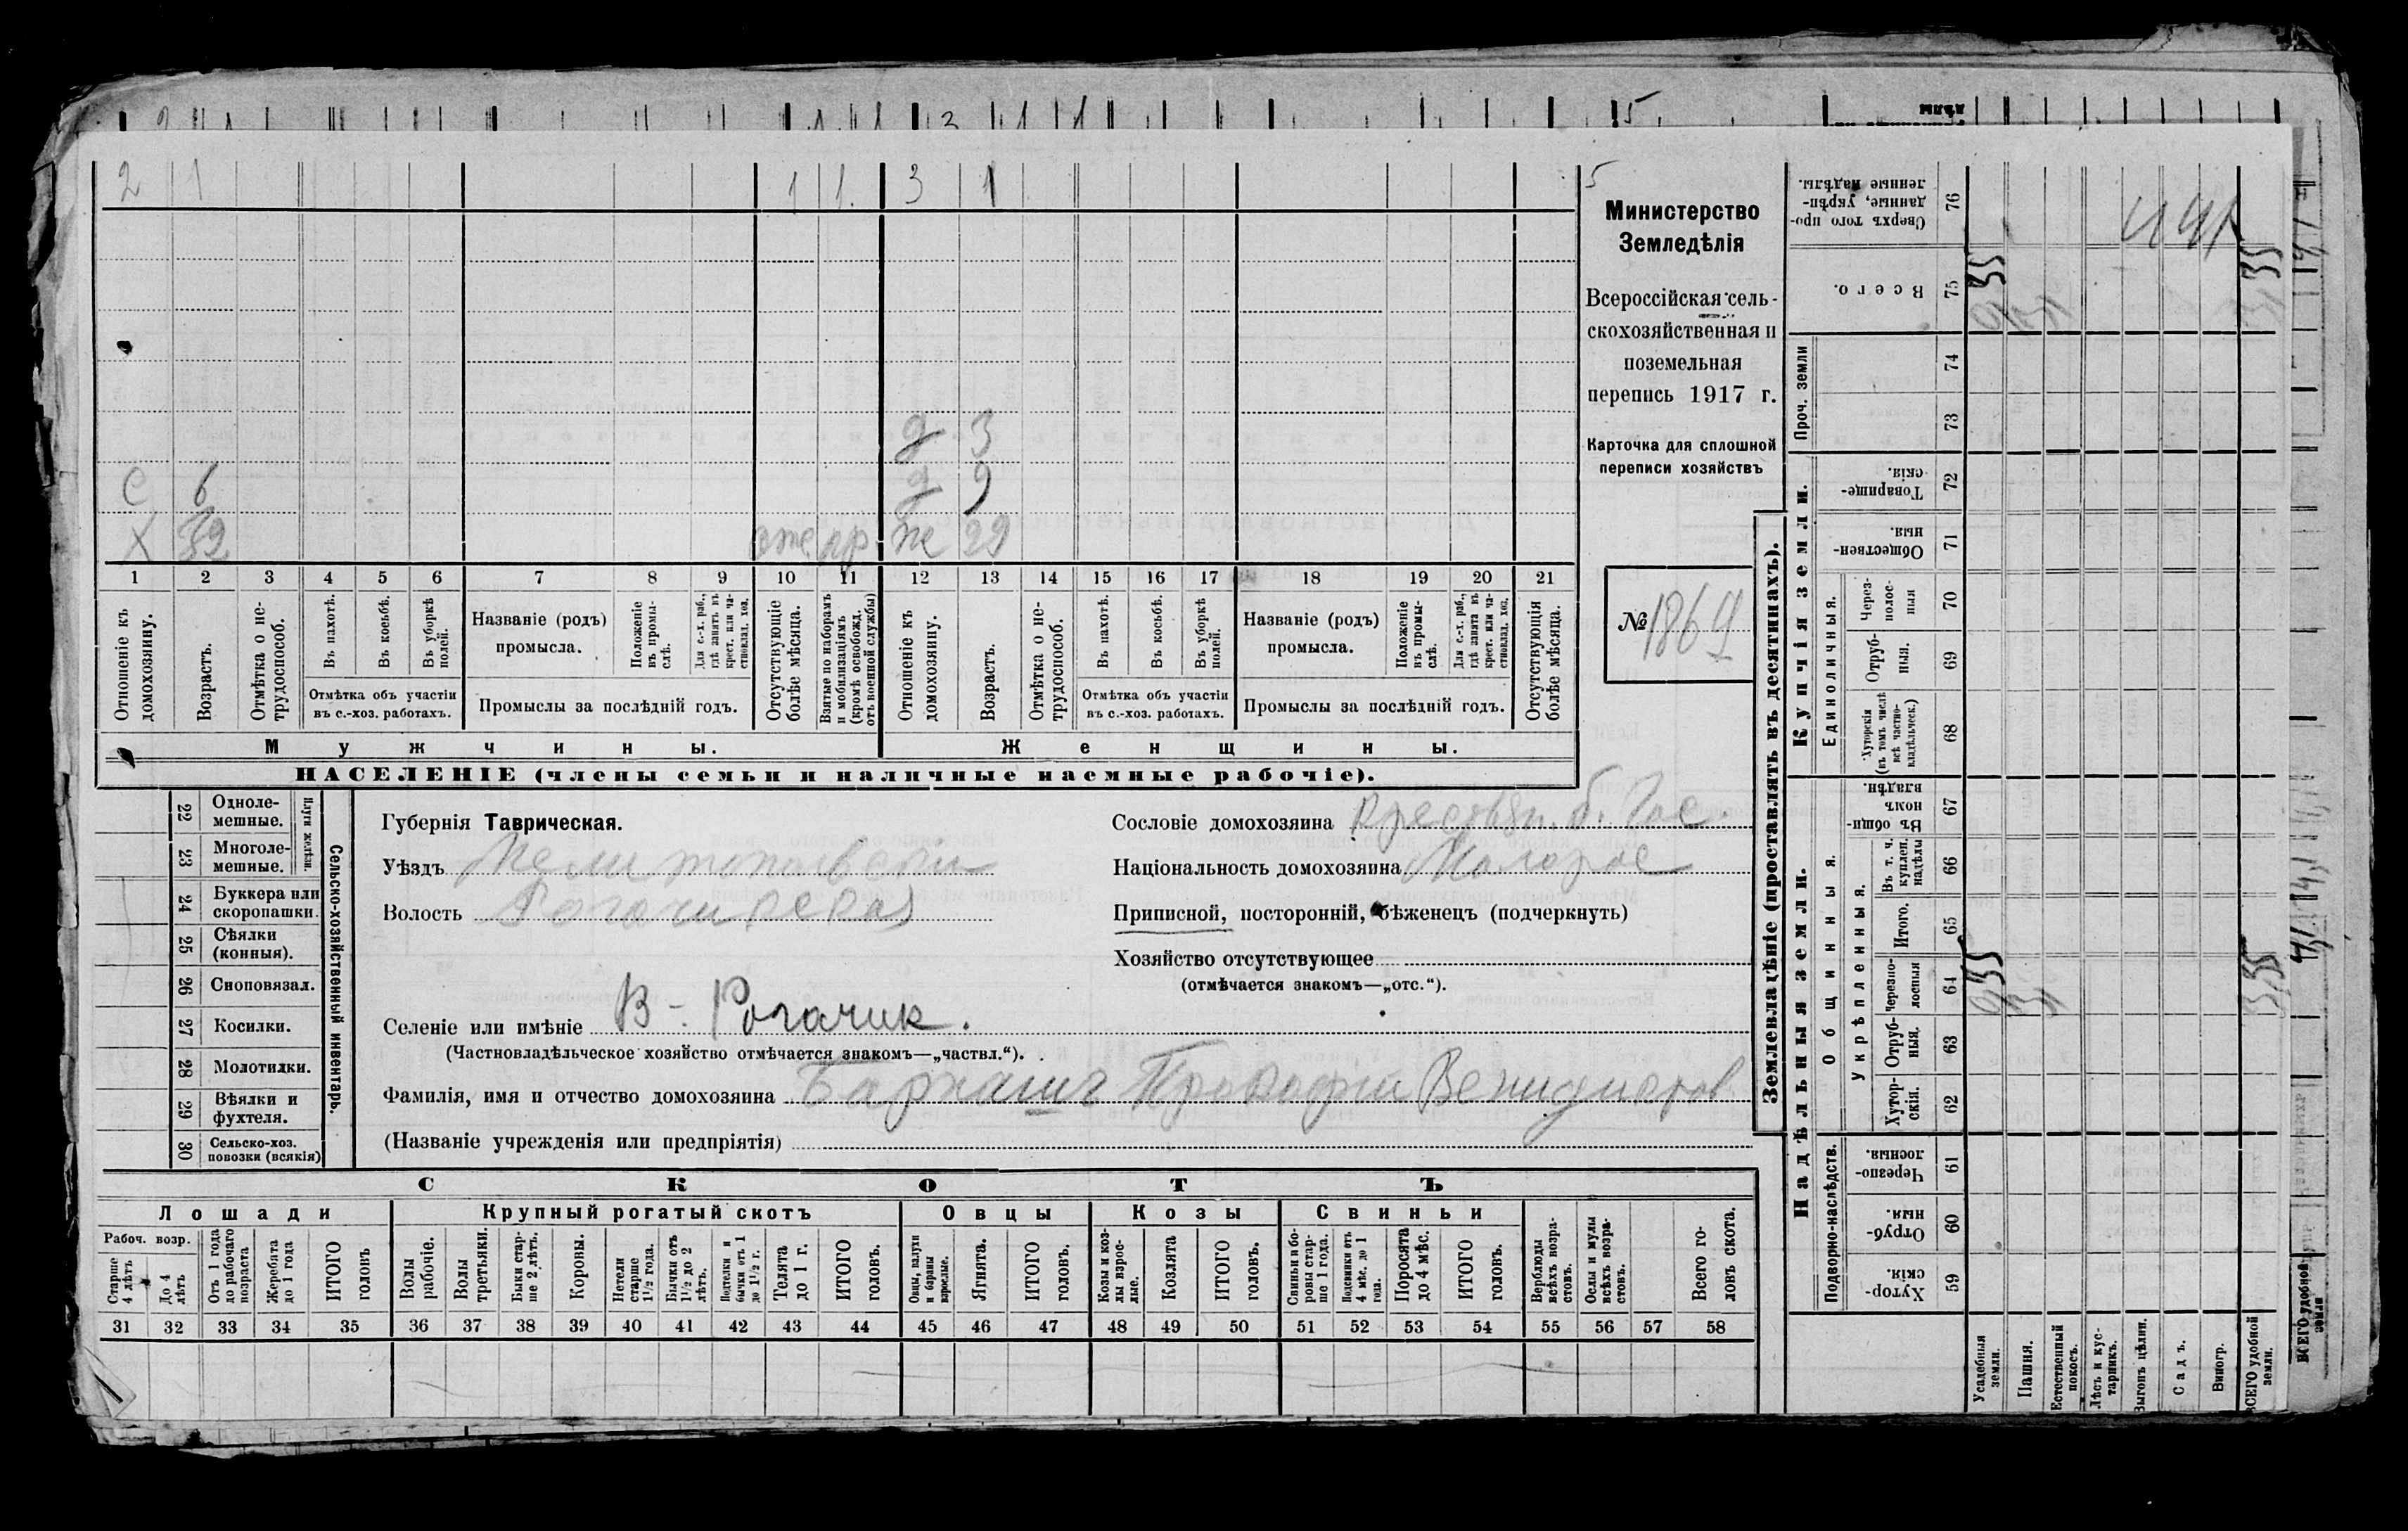 2 1 1 1 3 1 5
Министерство
Земледѣлія
Всероссійская сель-
скохозяйственная и
поземельная
перепись 1917 г.
Карточка для сплошной
переписи хозяйствъ
№ 1869
д 3
с 6 д 9
х 32 отс пр же 29
1 2 3 4 5 6 7 8 9 10 11 12 13 14 15 16 17 18 19 20 21
Отношеніе къ домохозяину.
Возрастъ.
Отмѣтка о не-трудоспособ.
Въ пахотѣ.
Въ косьбѣ.
Въ уборкѣ полей.
Отмѣтка объ участіи
въ с.-хоз. работахъ.
Названіе (родъ)
промысла.
Положеніе въ промы-слѣ.
Для с.-х. раб., гдѣ занятъ въ крест. или ча-стновлад. хоз.
Промыслы за послѣдній годъ.
Отсутствующіе болѣе мѣсяца.
Взятые по наборамъ и мобилизаціямъ (кромѣ освобожд. отъ военной службы)
Отношеніе къ домохозяину.
Возрастъ.
Отмѣтка о не-трудоспособ.
Въ пахотѣ.
Въ косьбѣ.
Въ уборкѣ полей.
Отмѣтка объ участіи
въ с.-хоз. работахъ.
Названіе (родъ)
промысла.
Положеніе въ промы-слѣ.
Для с.-х. раб., гдѣ занята въ крест. или ча-стновлад. хоз.
Промыслы за послѣдній годъ.
Отсутствующія болѣе мѣсяца.
Мужчины.
Женщины.
НАСЕЛЕНІЕ (члены семьи и наличные наемные рабочіе).
22 Одноле-мешные.
23 Многоле-мешные.
Плуги желѣзн.
24 Буккера или скоропашки.
25 Сѣялки (конныя).
26 Сноповязал.
27 Косилки.
28 Молотилки.
29 Вѣялки и фухтеля.
30 Сельско-хоз. повозки (всякія)
Сельско-хозяйственный инвентарь.
Губернія Таврическая.
Уѣздъ Мелитопольскій
Волость Рогачикская
Сословіе домохозяина крестьян. б. Гос.
Національность домохозяина Малорос
Приписной, посторонній, бѣженецъ (подчеркнуть)
Хозяйство отсутствующее
(отмѣчается знакомъ—„отс.“).
Селеніе или имѣніе В-Рогачик.
(Частновладѣльческое хозяйство отмѣчается знакомъ—„частвл.“).
Фамилія, имя и отчество домохозяина Баркашъ Прокофій Венидиктов
(Названіе учрежденія или предпріятія)
СКОТЪ
Лошади
Крупный рогатый скотъ
Овцы
Козы
Свиньи
Рабоч. возр.
Старше 4 лѣтъ
До 4 лѣтъ
Отъ 1 года до рабочаго возраста
Жеребята до 1 года
ИТОГО головъ
Волы рабочіе.
Волы третьяки.
Быки стар-ше 2 лѣтъ.
Коровы.
Нетели старше 1½ года.
Бычки отъ 1½ до 2 лѣтъ.
Подтелки и бычки отъ 1 до 1½ г.
Телята до 1 г.
ИТОГО головъ.
Овцы, валухи и бараны взрослые.
Ягнята.
ИТОГО головъ.
Козы и коз-лы взрос-лые.
Козлята
ИТОГО головъ.
Свиньи и бо-ровы стар-ше 1 года.
Подсвинки отъ 4 мѣс. до 1 года.
Поросята до 4 мѣс.
ИТОГО головъ.
Верблюды всѣхъ возра-стовъ.
Ослы и мулы всѣхъ возра-стовъ.
Всего го-ловъ скота.
31 32 33 34 35 36 37 38 39 40 41 42 43 44 45 46 47 48 49 50 51 52 53 54 55 56 57 58
Землевладѣніе (проставлять въ десятинахъ).
Надѣльныя земли.
Купчія земли.
Проч. земли
Подворно-наслѣдств.
Общинныя.
Укрѣпленныя.
Единоличныя.
Сверхъ того про-данные, укрѣп-ленные надѣлы. 76
Всего. 75
74
73
Товарище-скія. 72
Обществен-ныя. 71
Через-полос-ныя 70
Отруб-ныя. 69
Хуторскія (въ томъ числѣ всѣ частно-владѣльческ.) 68
Въ общи-номъ владѣн. 67
Въ т. ч. куплен. надѣлы 66
Итого. 65
Черезпо-лосныя 64
Отруб-ныя. 63
Хутор-скія. 62
Черезпо-лосныя. 61
Отруб-ныя. 60
Хутор-скія. 59
Усадебныя земли.
Пашня.
Естественный покосъ.
Лѣсъ и кус-тарникъ.
Выгонъ цѣлин.
Садъ.
Виногр.
ВСЕГО удобной земли.
ВСЕГО удобной земли